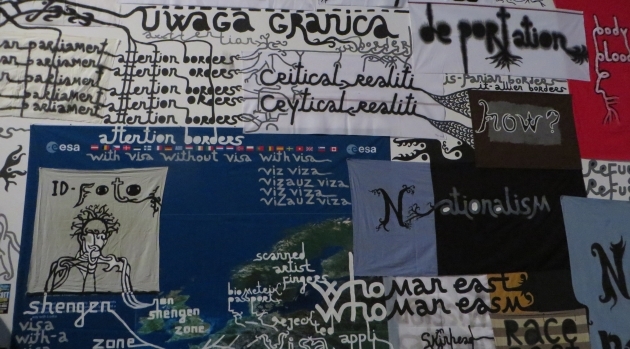 UWAGA GRANICA
de portation
body
blood
parliament
parliament
parliament
parliament
parliament
attention borders
attention borders
attention borders
attention orders
attention borders
critical realiti
ceytical realiti
is-panian borders
it-allien borders
how?
attention borders
esa
esa
with visa without visa with vis
viz viza
vizauz viza
vizauz viza
vizauz viza
ID-Foto
Nationalism
refu
refu
scanned
artist
fingers
biometrix
passport
reject
visa
who
who
apply
man east
man easm
shengen
visa
with-a
zone
non
shengen
zone
race
N